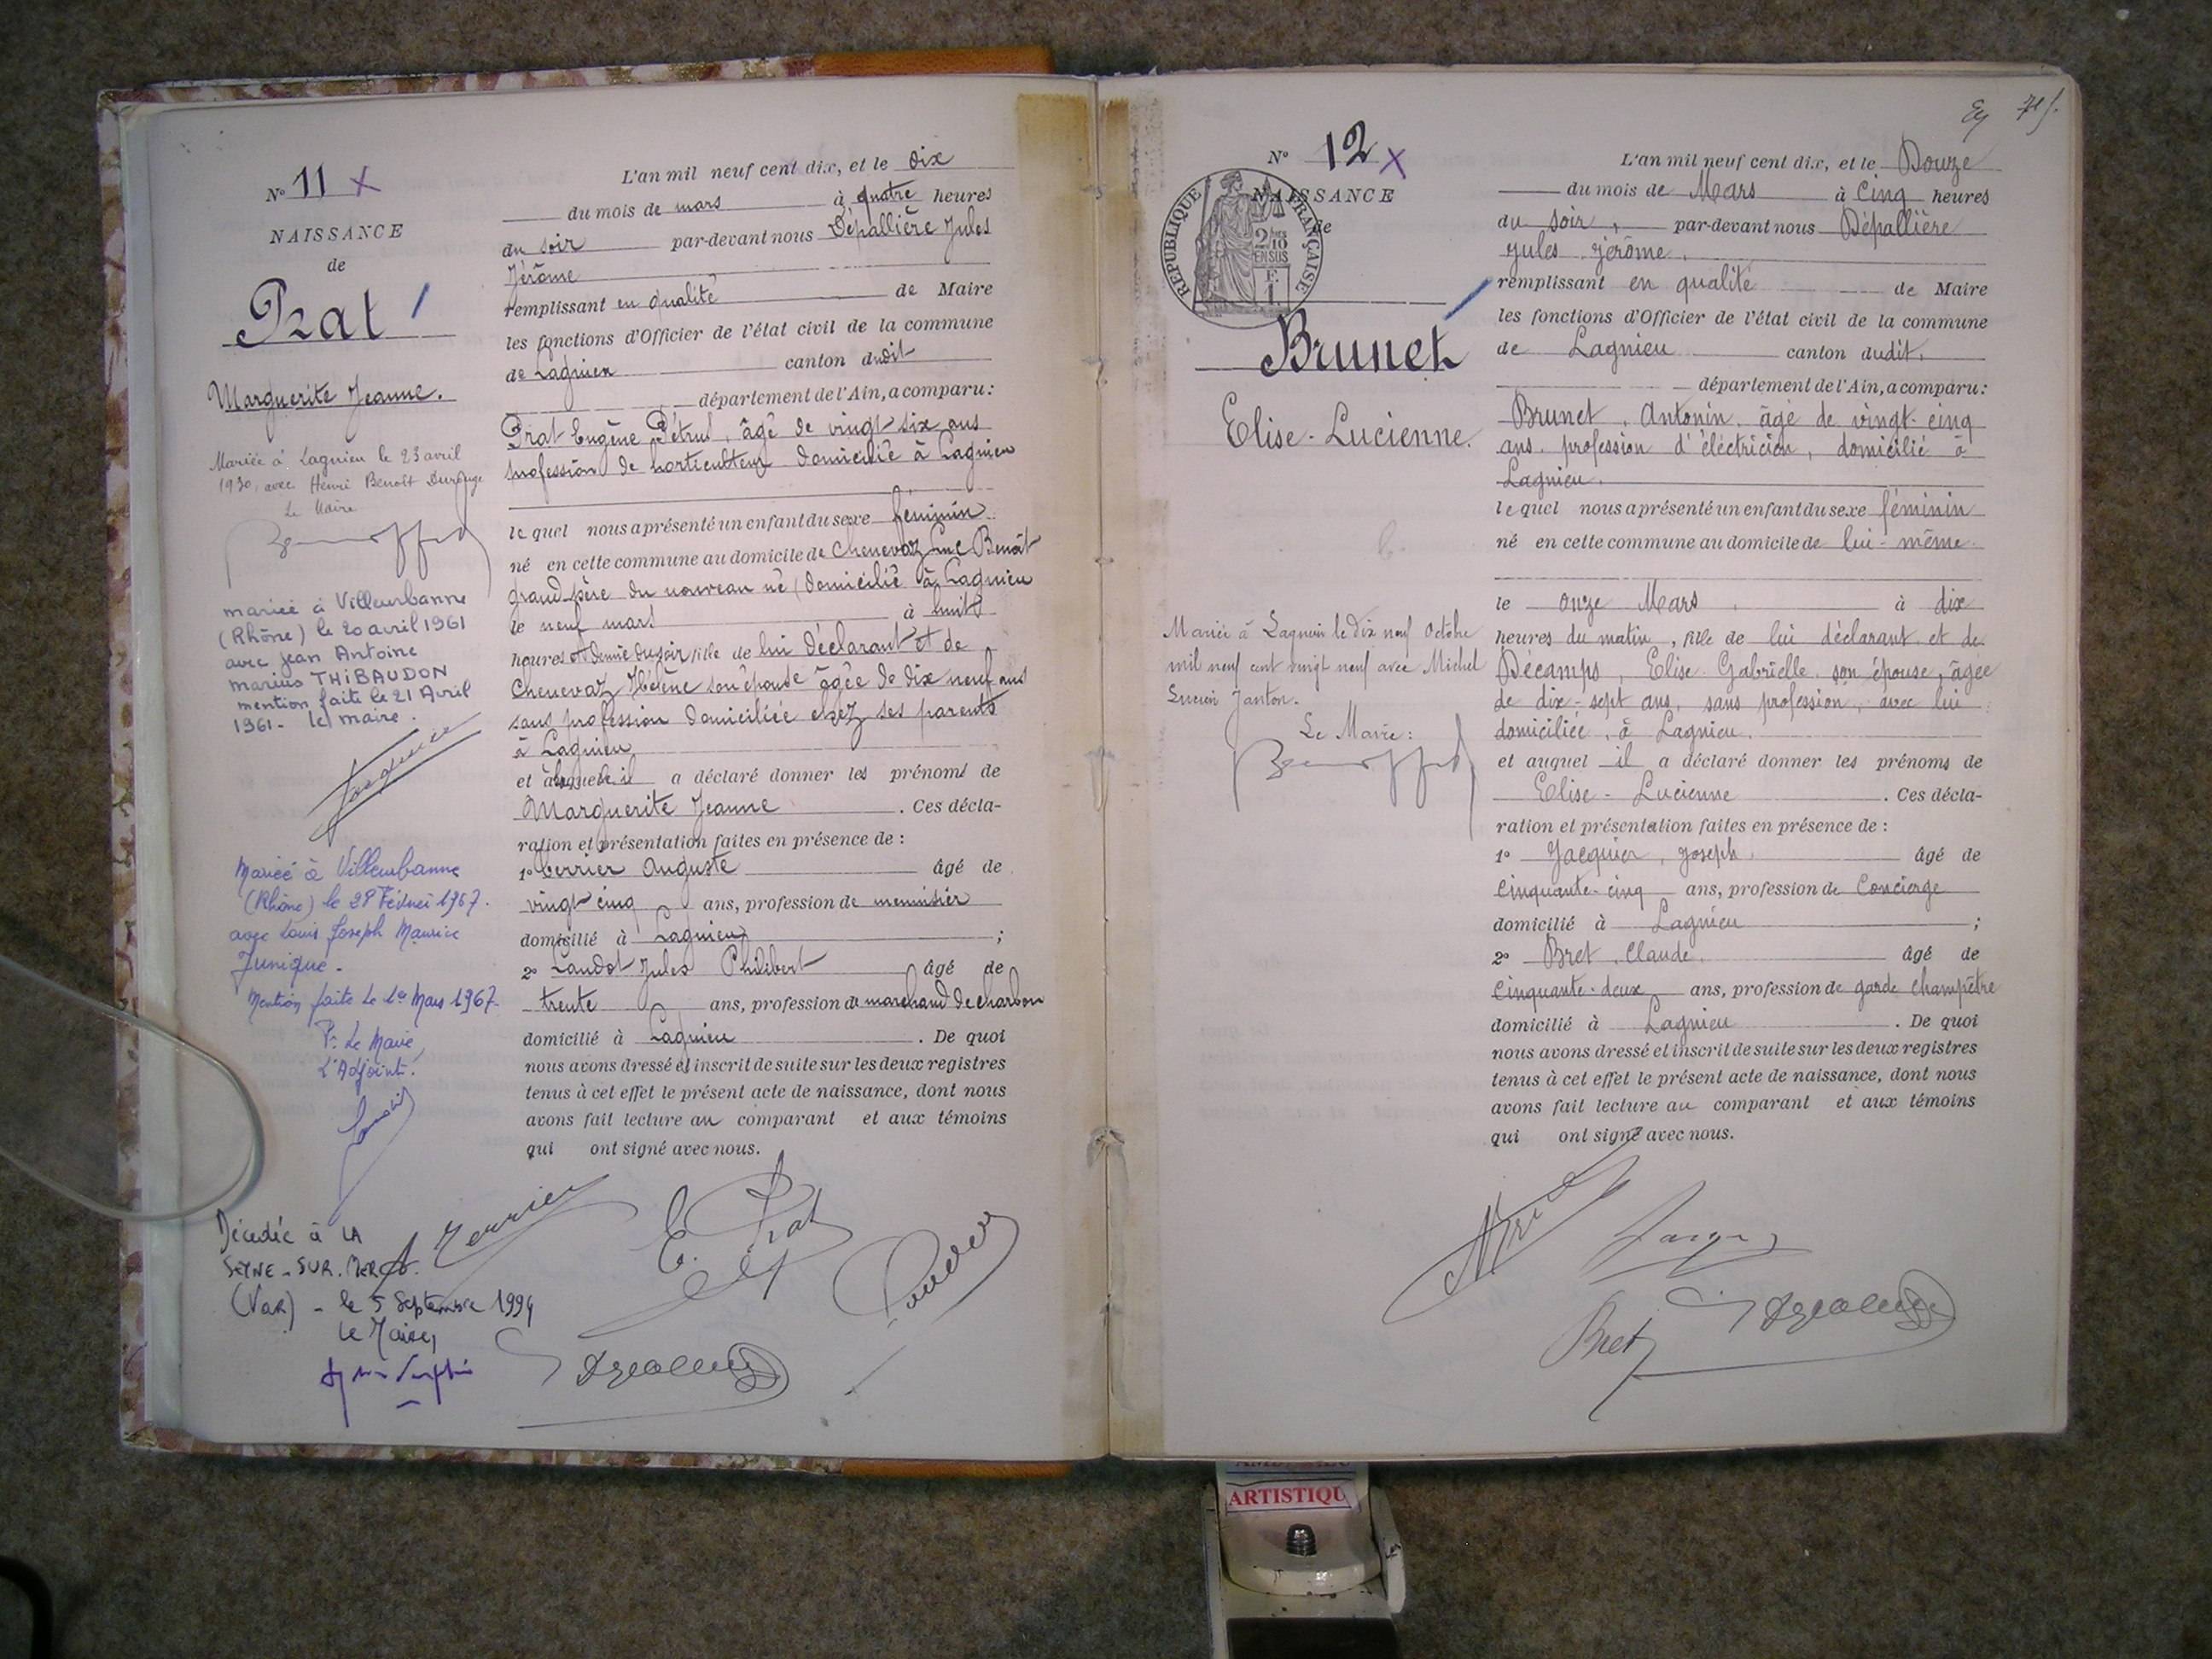 N° 11 X
NAISSANCE
de
Prat
Marguerite Jeanne.
Mariée à Lagnieu le 23 avril
1930, avec Henri Benoît Durouge
Le Maire
mariée à Villeurbanne
(Rhône) le 20 avril 1961
avec Jean Antoine
marius THIBAUDON
mention faite le 21 Avril
1961 - le maire.
Mariée à Villeurbanne
(Rhône) le 28 Février 1967.
avec Louis Joseph Maurice
Junique -
Mention faite le 1er Mars 1967.
P. Le Maire,
L'Adjoint.
Décédée à LA
SEYNE-SUR-MER
(VAR) - le 5 Septembre 1994
Le Maire,
L'an mil neuf cent dix, et le dix
du mois de mars à quatre heures
du soir par-devant nous Dépallière Jules
Jérôme
remplissant en qualité de Maire
les fonctions d'Officier de l'état civil de la commune
de Lagnieu canton dudit
département de l'Ain, a comparu:
Prat Eugène Pétrus, âgé de vingt-six ans
profession de horticulteur domicilié à Lagnieu
lequel nous a présenté un enfant du sexe féminin
né en cette commune au domicile de Chenevaz Luc Benoît
grand-père du nouveau né, domicilié à Lagnieu
le neuf mars à huit
heures et demie du soir fille de lui déclarant et de
Chenevaz Hélène son épouse âgée de dix neuf ans
sans profession domiciliée chez ses parents
à Lagnieu
et à laquelle il a déclaré donner les prénoms de
Marguerite Jeanne. Ces décla-
ration et présentation faites en présence de :
1° Auguste âgé de
vingt-cinq ans, profession de menuisier
domicilié à Lagnieu ;
2° Jules Philibert âgé de
trente ans, profession de marchand de charbon
domicilié à Lagnieu. De quoi
nous avons dressé et inscrit de suite sur les deux registres
tenus à cet effet le présent acte de naissance, dont nous
avons fait lecture au comparant et aux témoins
qui ont signé avec nous.
E. Prat
N° 12 X
NAISSANCE
de
RÉPUBLIQUE FRANÇAISE
2/10 EN SUS
F. 1.
Brunet
Elise-Lucienne.
Mariée à Lagnieu le dix neuf Octobre
mil neuf cent vingt neuf avec Michel
Lucien Janton.
Le Maire :
L'an mil neuf cent dix, et le Douze
du mois de Mars à Cinq heures
du soir, par-devant nous Dépallière
Jules Jérôme,
remplissant en qualité de Maire
les fonctions d'Officier de l'état civil de la commune
de Lagnieu canton dudit,
département de l'Ain, a comparu:
Brunet, Antonin, âgé de vingt-cinq
ans, profession d'électricien, domicilié à
Lagnieu.
lequel nous a présenté un enfant du sexe féminin
né en cette commune au domicile de lui-même
le onze Mars à dix
heures du matin, fille de lui déclarant et de
Décamps, Elise Gabrielle, son épouse, âgée
de dix-sept ans, sans profession, avec lui
domiciliée, à Lagnieu.
et auquel il a déclaré donner les prénoms de
Elise-Lucienne. Ces décla-
ration et présentation faites en présence de :
1° Jacquier, Joseph. âgé de
Cinquante-cinq ans, profession de Concierge
domicilié à Lagnieu ;
2° Bret, Claude. âgé de
Cinquante-deux ans, profession de garde champêtre
domicilié à Lagnieu. De quoi
nous avons dressé et inscrit de suite sur les deux registres
tenus à cet effet le présent acte de naissance, dont nous
avons fait lecture au comparant et aux témoins
qui ont signé avec nous.
Bret
ARTISTIQU